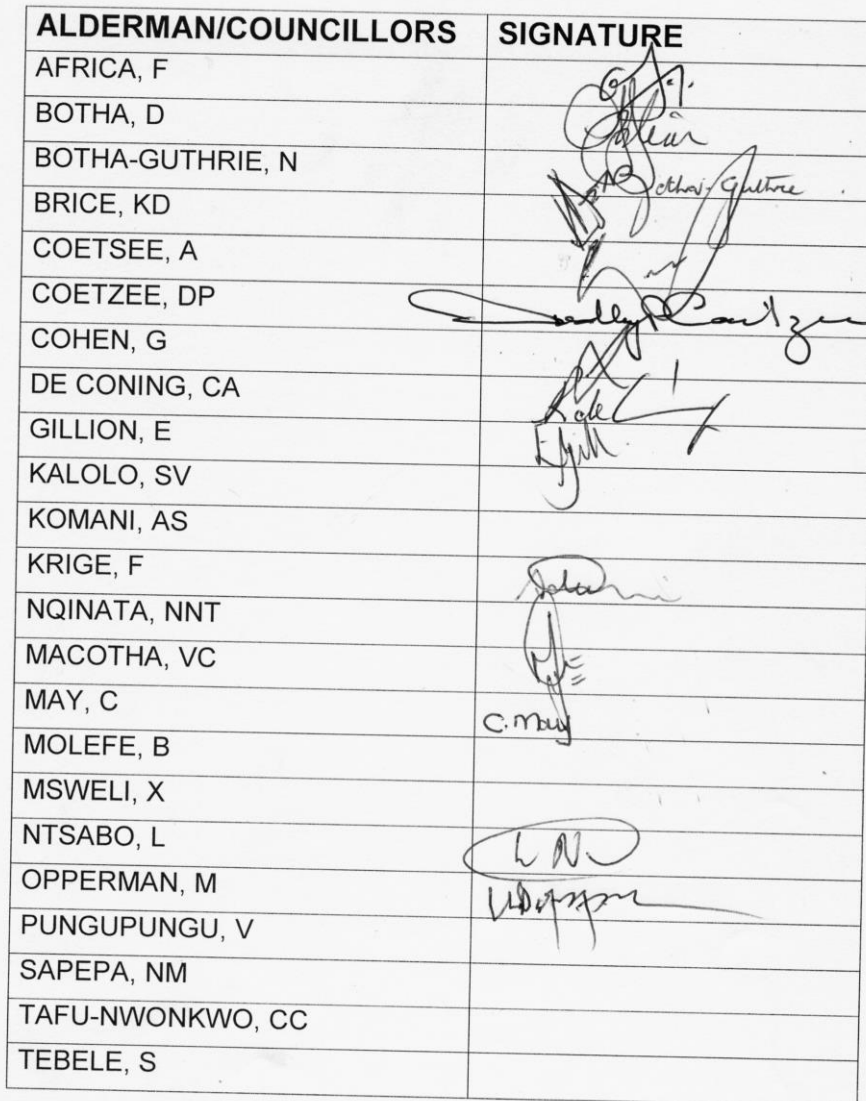 ALDERMAN/COUNCILLORS SIGNATURE
AFRICA, F
BOTHA, D
BOTHA-GUTHRIE, N Botha-Guthrie
BRICE, KD
COETSEE, A
COETZEE, DP Coetzee
COHEN, G
DE CONING, CA
GILLION, E
KALOLO, SV
KOMANI, AS
KRIGE, F
NQINATA, NNT
MACOTHA, VC
MAY, C C. May
MOLEFE, B
MSWELI, X
NTSABO, L L N
OPPERMAN, M
PUNGUPUNGU, V
SAPEPA, NM
TAFU-NWONKWO, CC
TEBELE, S